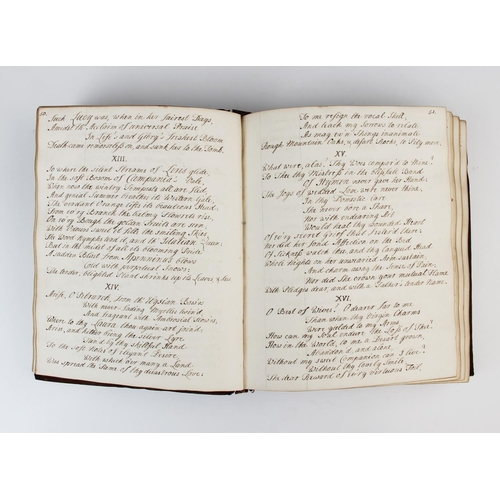 50.
Such Lucy was, when in her fairest Days,
Amidst th' Acclaim of universal Praise
In Life's and Glory's freshest Bloom
Death came remorseless on, and sunk her to the Tomb.
XIII.
So where the silent Streams of Liris glide,
In the soft Bosom of Campania's Vale,
When now the wintry Tempests all are fled,
And genial Summer breathes its Western Gale,
The verdant Orange lifts its beauteous Head,
From ev'ry Branch the balmy Flowrets rise,
On ev'ry Bough the golden Fruits are seen
With Odours sweet it fills the smiling Skies,
The Wood Nymphs tend it, and th' Idalian Queen:
But in the midst of all its blooming Pride
A sudden Blast from Apenninus blows
Cold with perpetual Snows:
The tender, blighted Plant shrinks up its Leaves, & dies
XIV.
Arise, O Petrarch, from th' Elysian Bow'rs
With never fading Myrtles twin'd
And fragrant with Ambrosial Flow'rs,
Where to thy Laura thou again art join'd;
Arise, and hither bring the Silver Lyre
Tun'd by thy skilful Hand
To the soft Notes of elegant Desire
With which o'er many a Land
Was spread the Fame of thy disastrous Love;
51.
To me resign the vocal Shell,
And teach my Sorrows to relate
As may ev'n Things inanimate
Rough Mountain Oaks, & desert Rocks, to Pity move.
XV.
What were, alas! Thy Woes compar'd to Mine?
To Thee thy Mistress in the blissful Band
Of Hymen never gave her Hand:
The Joys of wedded Love were never thine,
In thy Domestic Care
She never bore a Share,
Nor with endearing Art
Would heal thy wounded Heart
Of ev'ry secret Grief that fester'd there:
Nor did her fond Affection on the Bed
Of Sickness watch thee, and thy languid Head
Whole Nights on her unwearied Arm sustain,
And charm away the Sense of Pain:
Nor did She crown your mutual Flame
With Pledges dear, and with a Father's tender Name.
XVI.
O Best of Wives! O dearer far to me
Than when thy Virgin Charms
Were yielded to my Arms,
How can my Soul endure the Loss of Thee?
How in the World, to me a Desart grown,
Abandon'd, and alone,
Without my sweet Companion can I live?
Without thy lovely Smile
The dear Reward of ev'ry virtuous Toil,